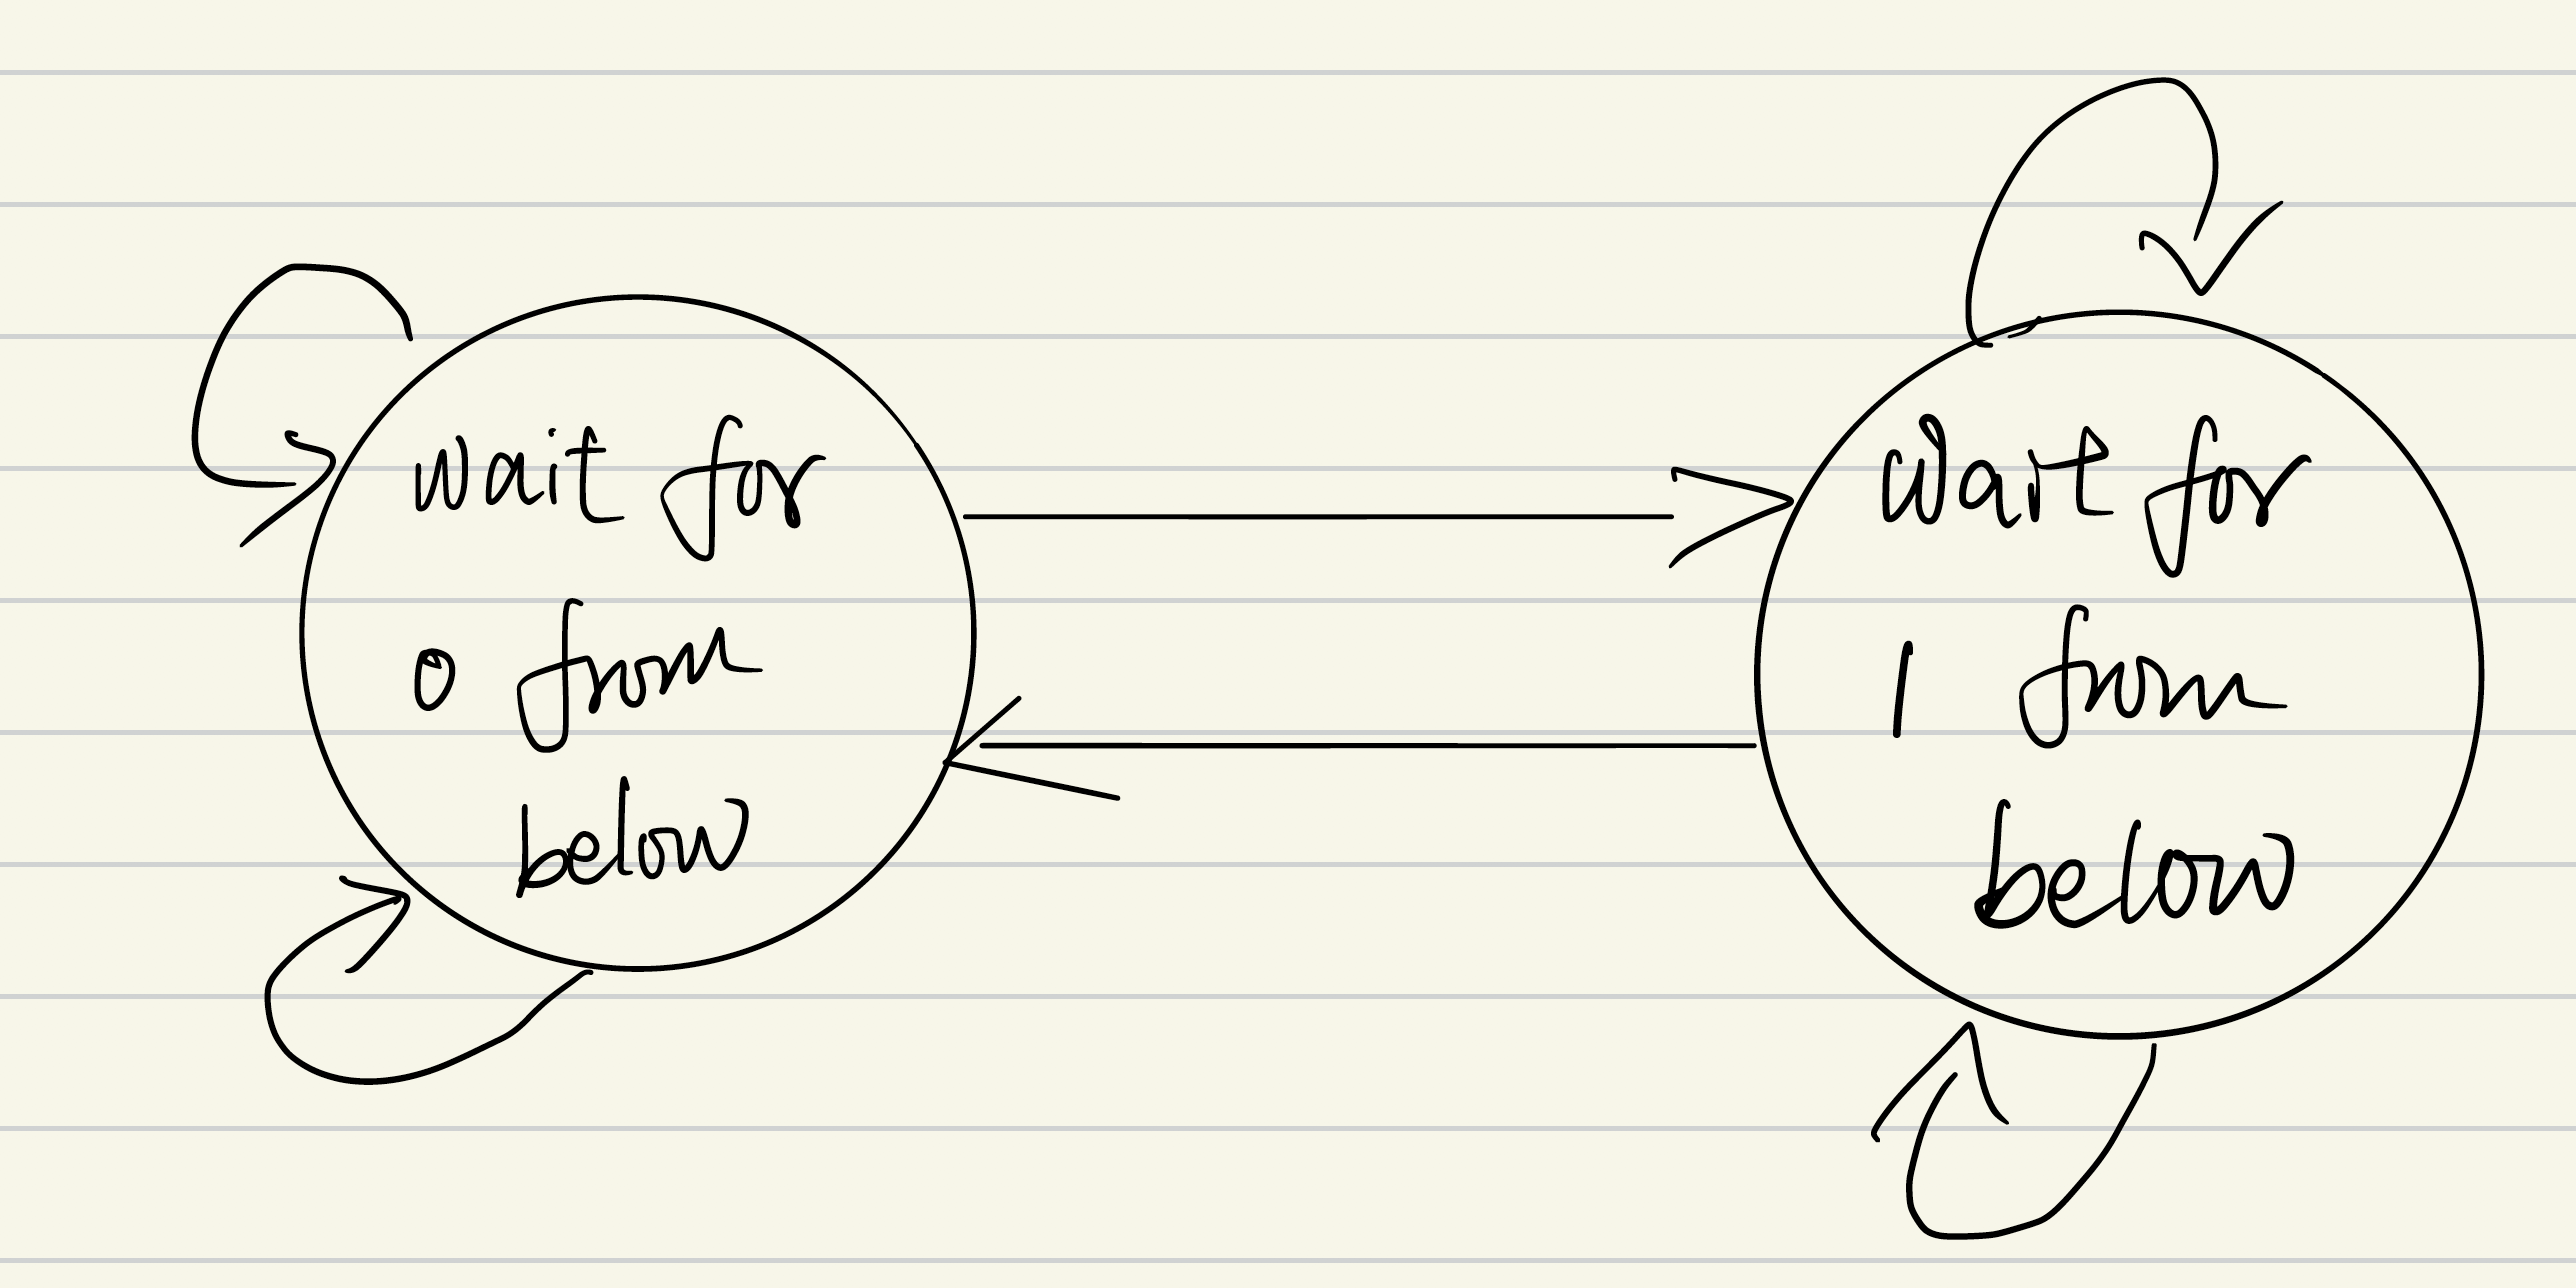 wait for
0 from
below
Wait for
1 from
below